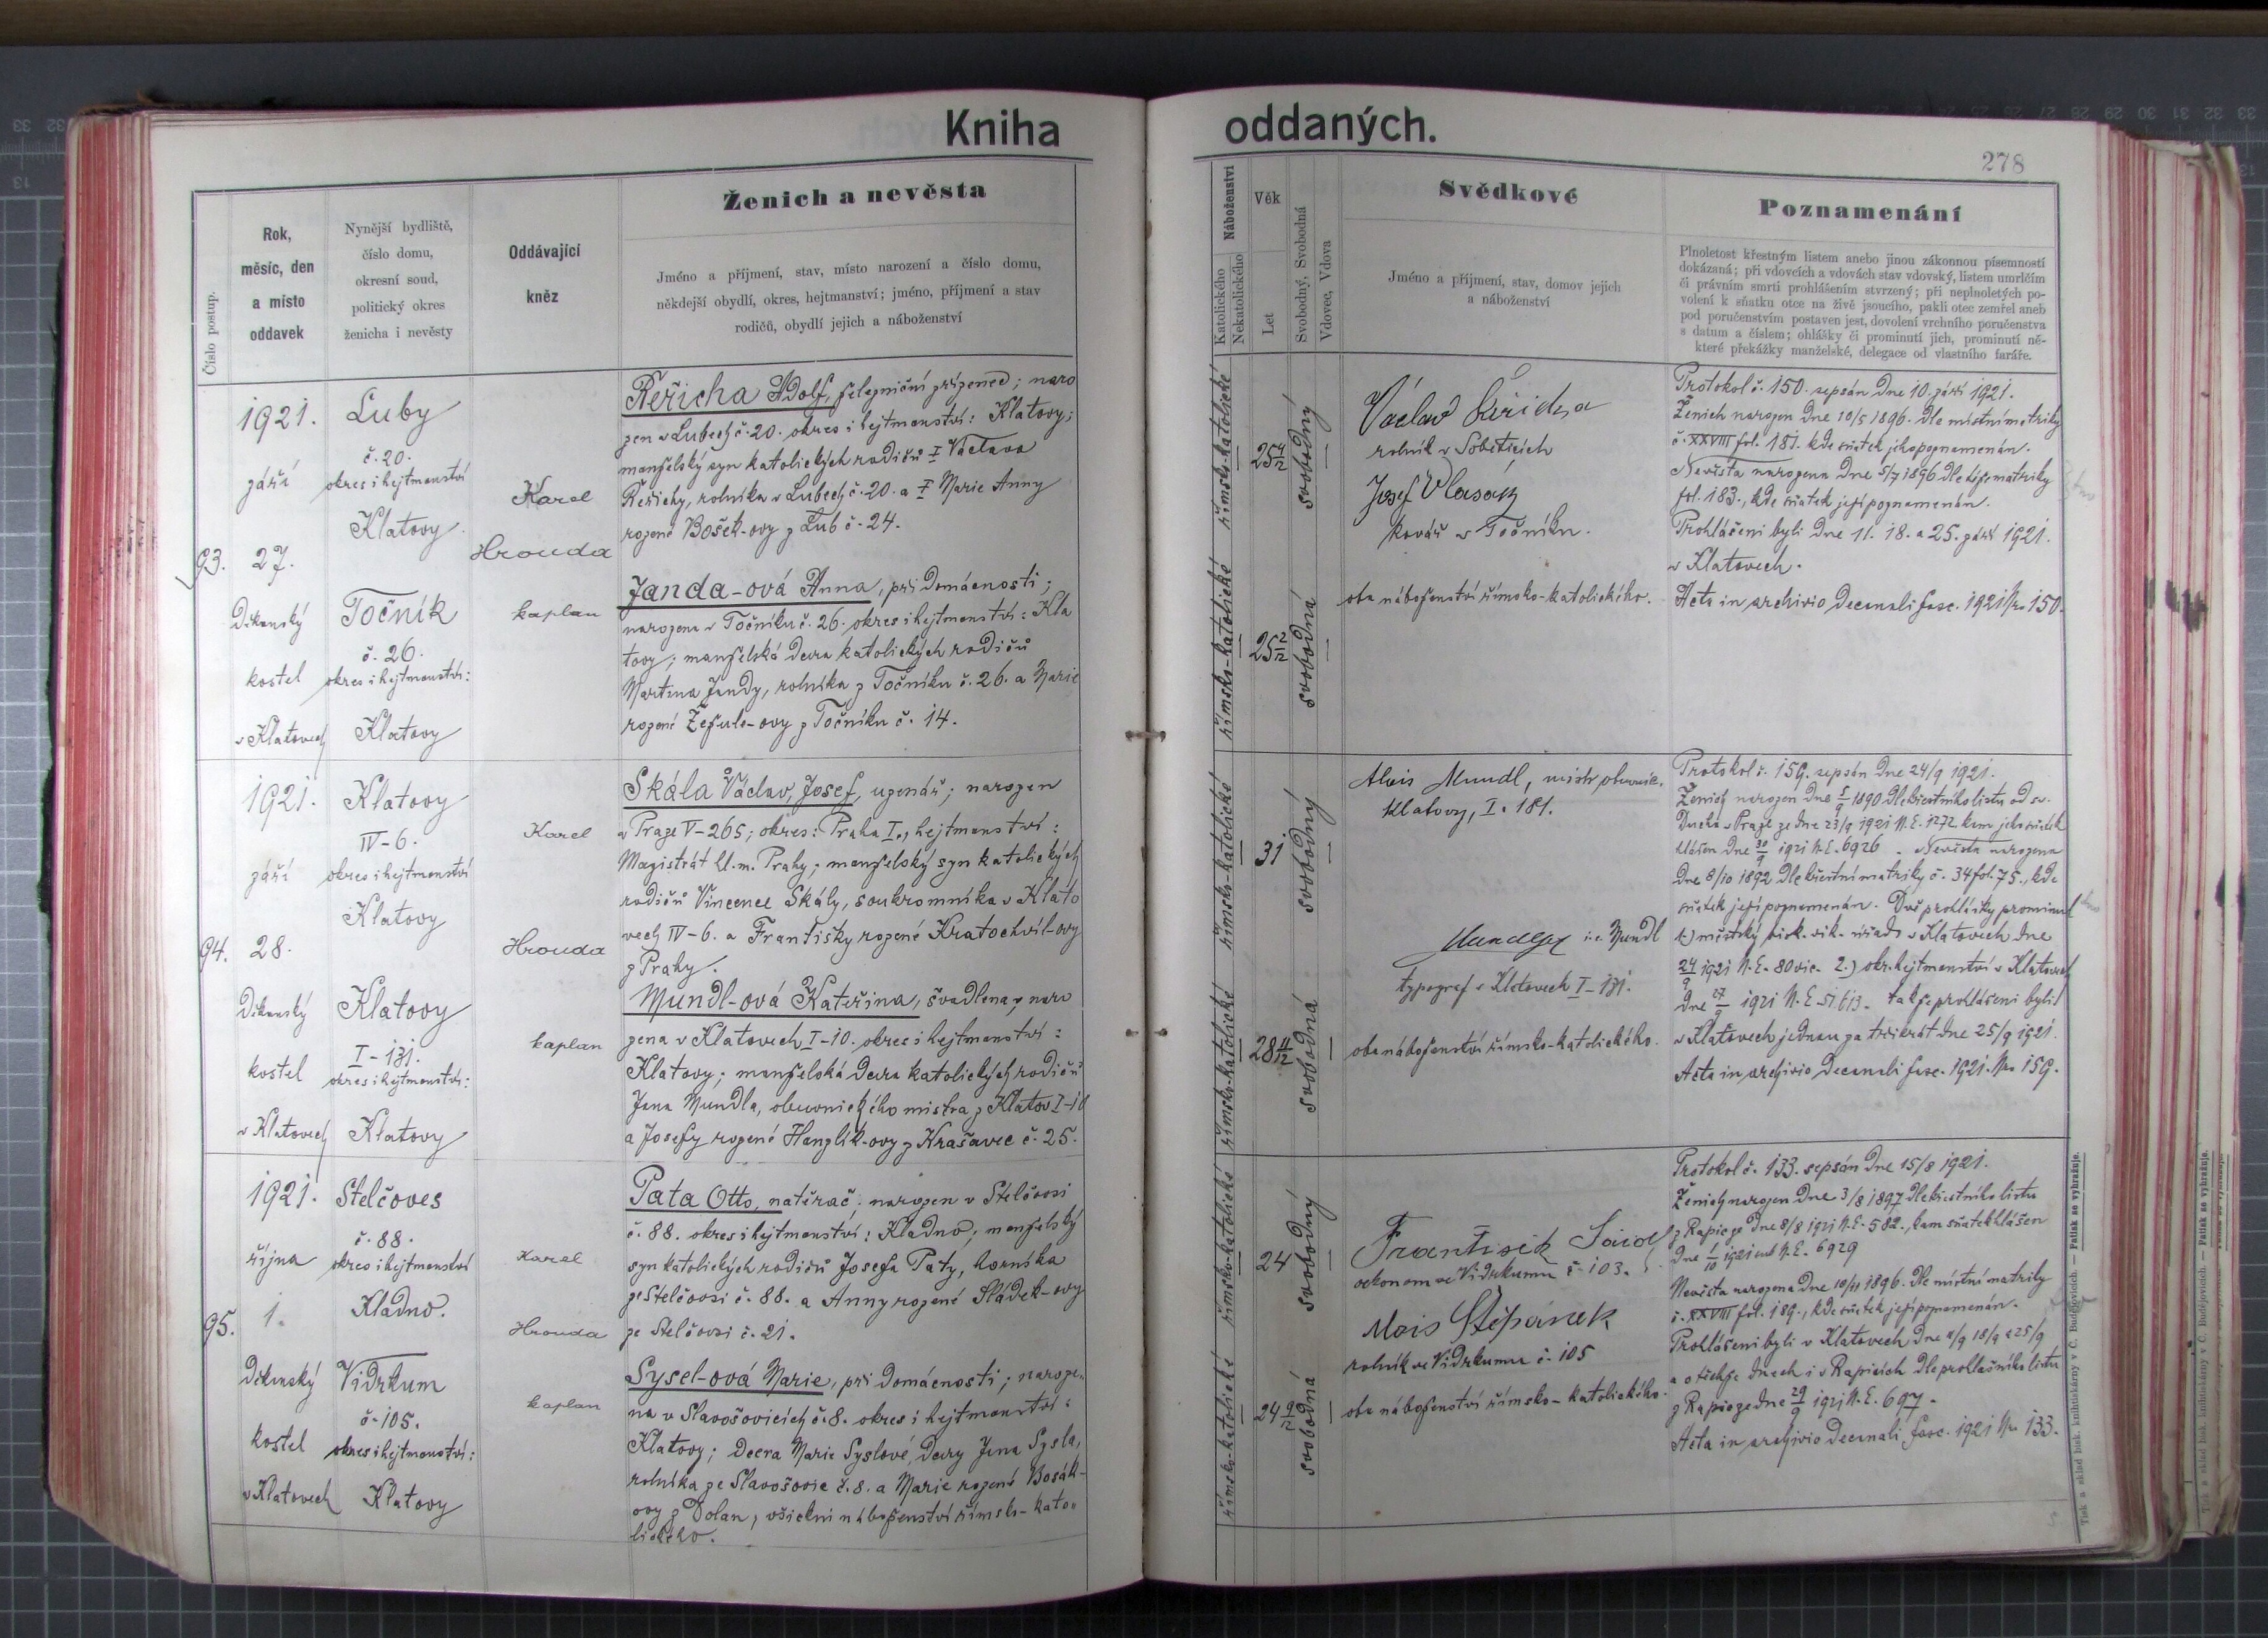 Kniha oddaných.
278
Číslo postup.
Rok,
měsíc, den
a místo
oddavek
Nynější bydliště,
číslo domu,
okresní soud,
politický okres
ženicha i nevěsty
Oddávající
kněz
Ženich a nevěsta
Jméno a příjmení, stav, místo narození a číslo domu,
někdejší obydlí, okres, hejtmanství; jméno, příjmení a stav
rodičů, obydlí jejich a náboženství
Náboženství
Katolického
Nekatolického
Věk
Let
Svobodný, Svobodná
Vdovec, Vdova
Svědkové
Jméno a příjmení, stav, domov jejich
a náboženství
Poznamenání
Plnoletost křestným listem anebo jinou zákonnou písemností
dokázaná; při vdovcích a vdovách stav vdovský, listem umrlčím
či právním smrti prohlášením stvrzený; při neplnoletých po-
volení k sňatku otce na živě jsoucího, pakli otec zemřel aneb
pod poručenstvím postaven jest, dovolení vrchního poručenstva
s datum a číslem; ohlášky či prominutí jich, prominutí ně-
které překážky manželské, delegace od vlastního faráře.
93.
1921.
září
27.
Děkanský
kostel
v Klatovech
Luby
č. 20.
okres i hejtmanství
Klatovy
Točník
č. 26.
okres i hejtmanství:
Klatovy
Karel
Hrouda
kaplan
Řeřicha Adolf, železniční zřízenec; naro
zen v Lubech č. 20. okres i hejtmanství: Klatovy;
manželský syn katolických rodičů † Václava
Řeřichy, rolníka v Lubech č. 20. a † Marie Anny
rozené Bošek-ovy z Lub č. 24.
Janda-ová Anna, při domácnosti;
narozena v Točníku č. 26. okres i hejtmanství: Kla
tovy; manželská dcera katolických rodičů
Martina Jandy, rolníka z Točníku č. 26. a Marie
rozené Žežule-ovy z Točníku č. 14.
římsko-katolické
25 4/12
svobodný
římsko-katolické
25 2/12
svobodná
Václav Řeřicha
rolník v Soběticích
Josef Vlasák
kovář v Točníku.
oba náboženství římsko-katolického.
Protokol č. 150. sepsán dne 10. září 1921.
Ženich narozen dne 10/5 1896. dle místní matriky
č. XXVIII fol. 181. kde sňatek jeho poznamenán.
Nevěsta narozena dne 5/7 1896 dle téže matriky
fol. 183., kde sňatek její poznamenán.
Prohlášeni byli dne 11. 18. a 25. září 1921.
v Klatovech.
Acta in archivio decanali fasc. 1921 No 150.
94.
1921.
září
28.
Děkanský
kostel
v Klatovech
Klatovy
IV-6.
okres i hejtmanství
Klatovy
Klatovy
I-131.
okres i hejtmanství:
Klatovy
Karel
Hrouda
kaplan
Skála Václav, Josef, uzenář; narozen
v Praze V-265; okres: Praha I., hejtmanství:
Magistrát hl. m. Prahy; manželský syn katolických
rodičů Vincence Skály, soukromníka v Klato
vech IV-6. a Františky rozené Kratochvíl-ovy
z Prahy.
Mundl-ová Kateřina, švadlena, naro
zena v Klatovech I-10. okres i hejtmanství:
Klatovy; manželská dcera katolických rodičů
Jana Mundla, obuvnického mistra z Klatov I-10
a Josefy rozené Hanglík-ovy z Krašavec č. 25.
římsko-katolické
31
svobodný
římsko-katolické
28 11/12
svobodná
Alois Mundl, mistr obuvnic.
Klatovy, I. 181.
i. e. Mundl
typograf v Klatovech I-131.
oba náboženství římsko-katolického.
Protokol č. 159. sepsán dne 24/9 1921.
Ženich narozen dne 5/9 1890 dle křestního listu od sv.
Ducha v Praze ze dne 23/9 1921 N. E. 1272 kam jeho sňatek
hlášen dne 30/9 1921 N. E. 6926. Nevěsta narozena
dne 8/10 1892 dle křestní matriky č. 34 fol. 75., kde
sňatek její poznamenán. Dvě prohlášky prominul
1.) městský bisk. vik. úřad v Klatovech dne
24/9 1921 N. E. 80 vic. 2.) okr. hejtmanství v Klatovech
dne 27/9 1921 N. E. 51613. takže prohlášeni byli
v Klatovech jednou za třikrát dne 25/9 1921.
Acta in archivio decanali fasc. 1921. No 159.
95.
1921.
října
1.
Děkanský
kostel
v Klatovech
Stelčoves
č. 88.
okres i hejtmanství
Kladno.
Vidrkum
č. 105.
okres i hejtmanství:
Klatovy
Karel
Hrouda
kaplan
Pata Otto, natěrač; narozen v Stelčovsi
č. 88. okres i hejtmanství: Kladno; manželský
syn katolických rodičů Josefa Paty, horníka
ze Stelčovsi č. 88. a Anny rozené Sládek-ovy
ze Stelčovsi č. 21.
Sysel-ová Marie, při domácnosti; naroze-
na v Slavošovicích č. 8. okres i hejtmanství:
Klatovy; dcera Marie Syslové, dcery Jana Sysla,
rolníka ze Slavošovic č. 8. a Marie rozené Bosák-
ovy z Dolan, všichni náboženství římsko-kato-
lického.
římsko-katolické
24
svobodný
římsko-katolické
24 9/12
svobodná
František
oekonom ve Vidrkumu č. 103.
Alois Štěpánek
rolník ve Vidrkumu č. 105
oba náboženství římsko-katolického.
Protokol č. 133. sepsán dne 15/8 1921.
Ženich narozen dne 3/8 1897 dle křestního listu
z Rapic ze dne 8/8 1921 N. E. 582., kam sňatek hlášen
dne 1/10 1921 sub N. E. 6929
Nevěsta narozena dne 10/11 1896. dle místní matriky
č. XXVIII fol. 189., kde sňatek její poznamenán.
Prohlášeni byli v Klatovech dne 11/9 18/9 a 25/9
a o těchže dnech i v Rapicích dle prohlášního listu
z Rapic ze dne 29/9 1921 N. E. 697.
Acta in archivio decanali fasc. 1921 No 133.
Tisk a sklad bisk. knihtiskárny v Č. Budějovicích. — Patisk se vyhražuje.